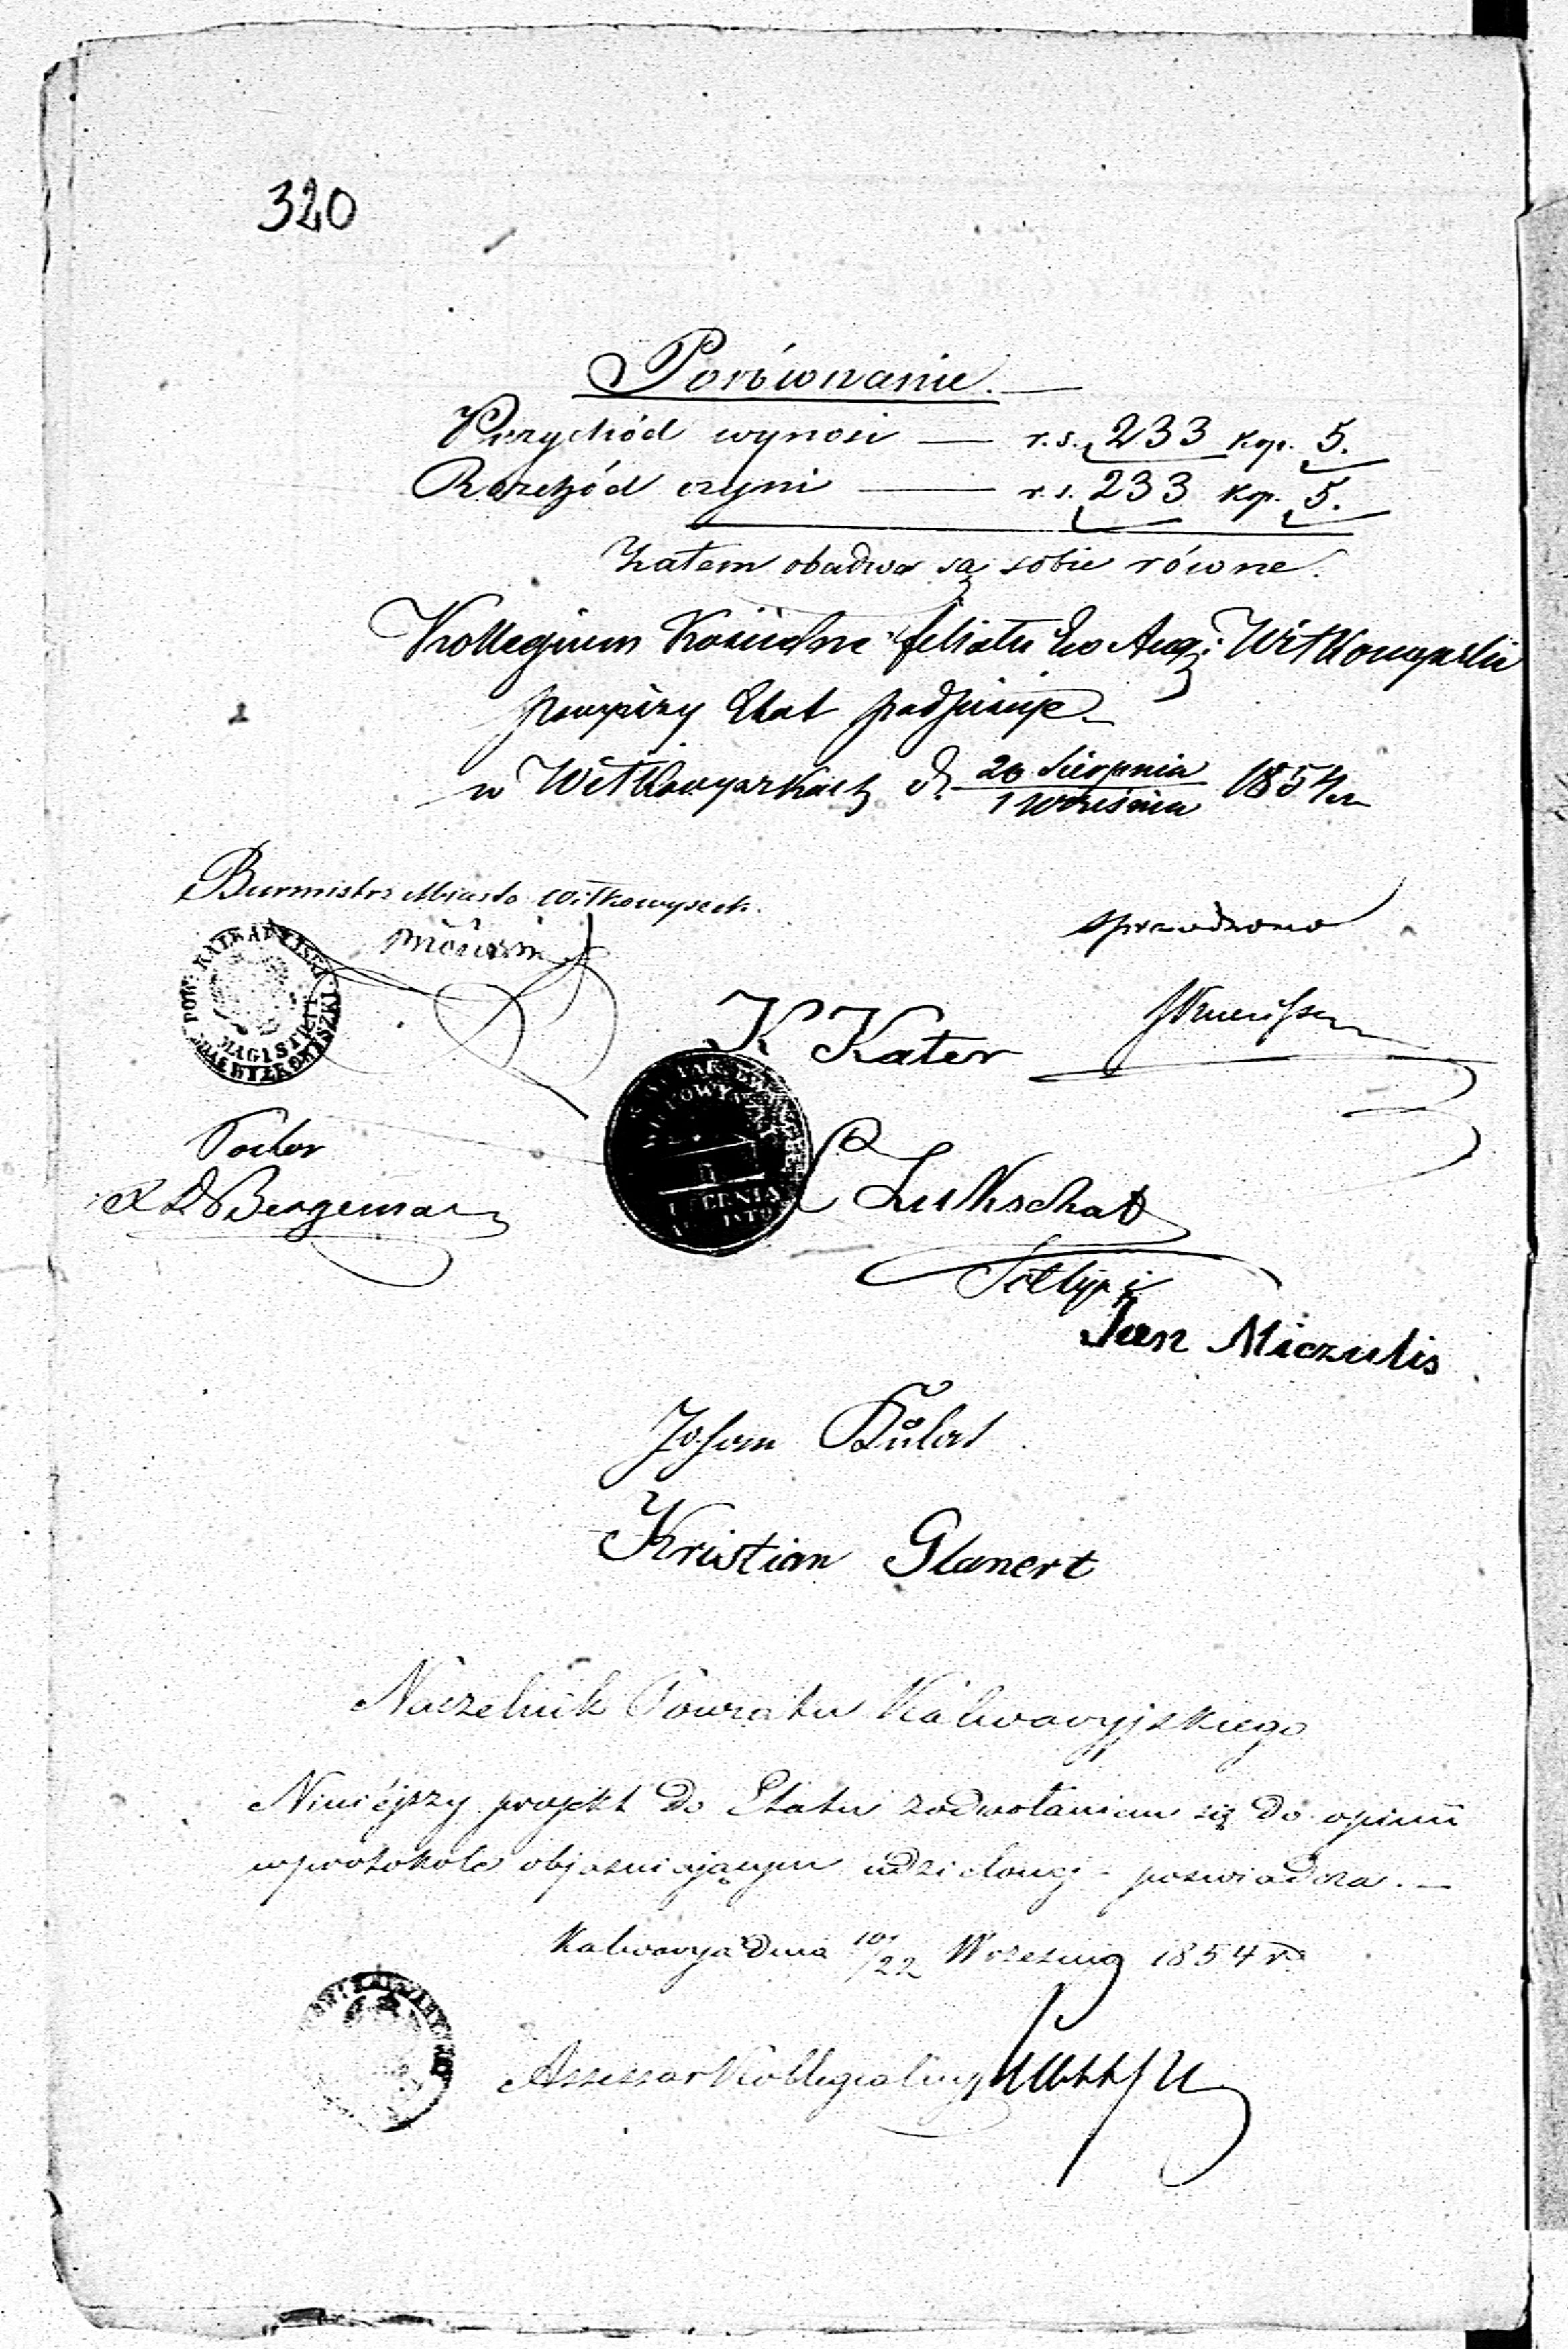 320
Porównanie.
Przychód wynosi — r.s. 233 kop. 5.
Rozchód czyni — r.s. 233 kop. 5.
Zatem obadwa są sobie równe.
Kollegium Kościelne filiału Ew Aug: Witkowyskie
powyższy Etat podpisuje
w Witkowyszkach d. 20 Sierpnia / 1 Września 1854 r.
Burmistrz Miasta Wiłkowyszek.
sprawdzono
K Kater
MAGISTRAT
Pastor
Bergeman
Lukschat
Jan Miczulis
Johann
Kristian Glanert
Naczelnik Powiatu Kalwaryjskiego
Niniéjszy projekt do Etatu z odwołaniem się do opinii
w protokole objaśniającym udzielonej – poświadcza. —
Kalwarya dnia 10/22 Września 1854 r.
Assessor Kollegialny